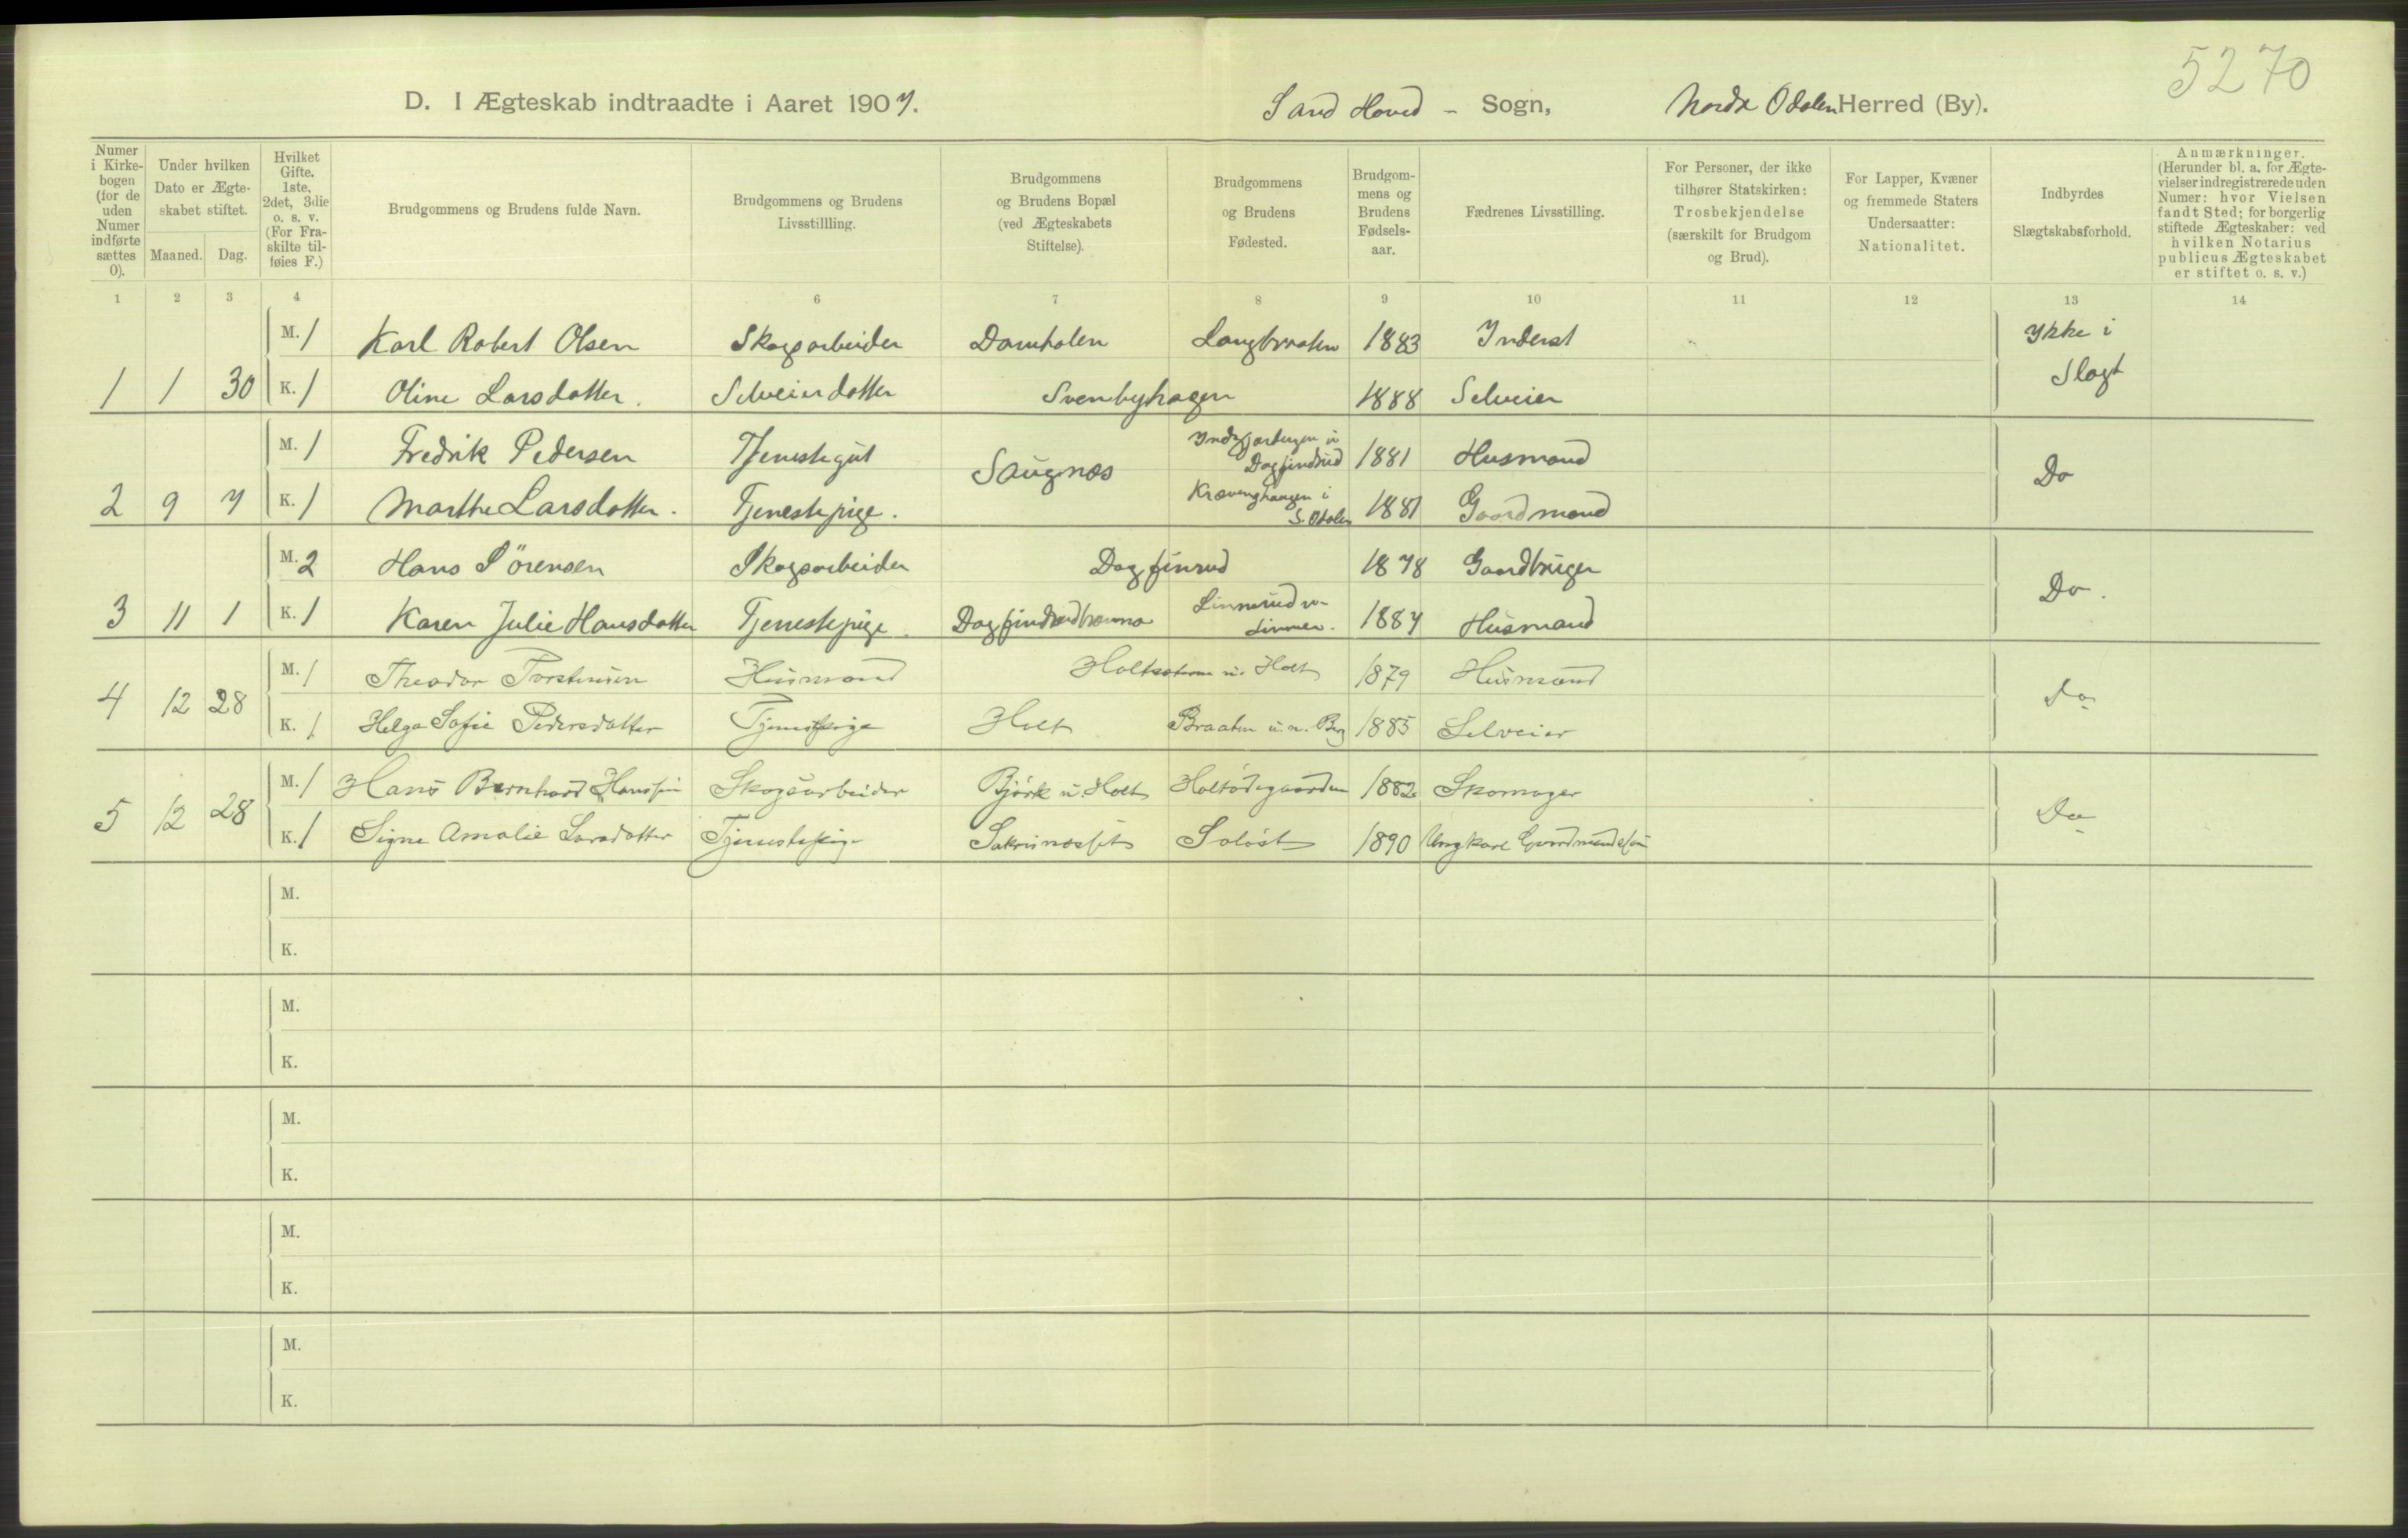 5270
D. I Ægteskab indtraadte i Aaret 1907. Sand Hoved - Sogn, Nordr Odalen Herred (By).
Numer i Kirkebogen (for de uden Numer indførte sættes 0).
Under hvilken Dato er Ægteskabet stiftet. Maaned. Dag.
Hvilket Gifte. 1ste, 2det, 3die o. s. v. (For Fraskilte tilføies F.)
Brudgommens og Brudens fulde Navn.
Brudgommens og Brudens Livsstillling.
Brudgommens og Brudens Bopæl (ved Ægteskabets Stiftelse).
Brudgommens og Brudens Fødested.
Brudgommens og Brudens Fødselsaar.
Fædrenes Livsstilling.
For Personer, der ikke tilhører Statskirken: Trosbekjendelse (særskilt for Brudgom og Brud).
For Lapper, Kvæner og fremmede Staters Undersaatter: Nationalitet.
Indbyrdes Slægtskabsforhold.
Anmærkninger. (Herunder bl. a. for Ægtevielser indregistrerede uden Numer: hvor Vielsen fandt Sted; for borgerlig stiftede Ægteskaber: ved hvilken Notarius publicus Ægteskabet er stiftet o. s. v.)
1 2 3 4 6 7 8 9 10 11 12 13 14
M. 1 Karl Robert Olsen Skogsarbeider Damholen Langbraaten 1883 Inderst Ykke i
1 1 30 K. 1 Oline Larsdatter. Selveierdatter Svenbyhagen 1888 Selveier Slagt
M. 1 Fredrik Pedersen Tjenestegut Saugnæs Dagfindrud 1881 Husmand Do
2 9 7 K. 1 Marthe Larsdatter. Tjenestepige. i S. Odalen 1881 Gaardmand
M. 2 Hans Sörensen Skogsarbeider Dagfinrud 1878 Gaardbruger Do.
3 11 1 K. 1 Karen Julie Hansdatter Tjenestepige. Linnerud 1887 Husmand
M. 1 Theodor Torstensen Husmand u. Holt 1879 Husmand Do
4 12 28 K. 1 Helga Sofie Pedersdatter Tjenestepige Holt Braaten u. n. Berg 1885 Selveier
M. 1 Hans Bernhard Hanssen Skogsarbeider Bjørk u. Holt Holtødegaarden 1882 Skomager Do
5 12 28 K. 1 Signe Amalie Larsdatter Tjenestepige Soløst 1890 Ungkarl Gaardmandssøn
M.
K.
M.
K.
M.
K.
M.
K.
M.
K.